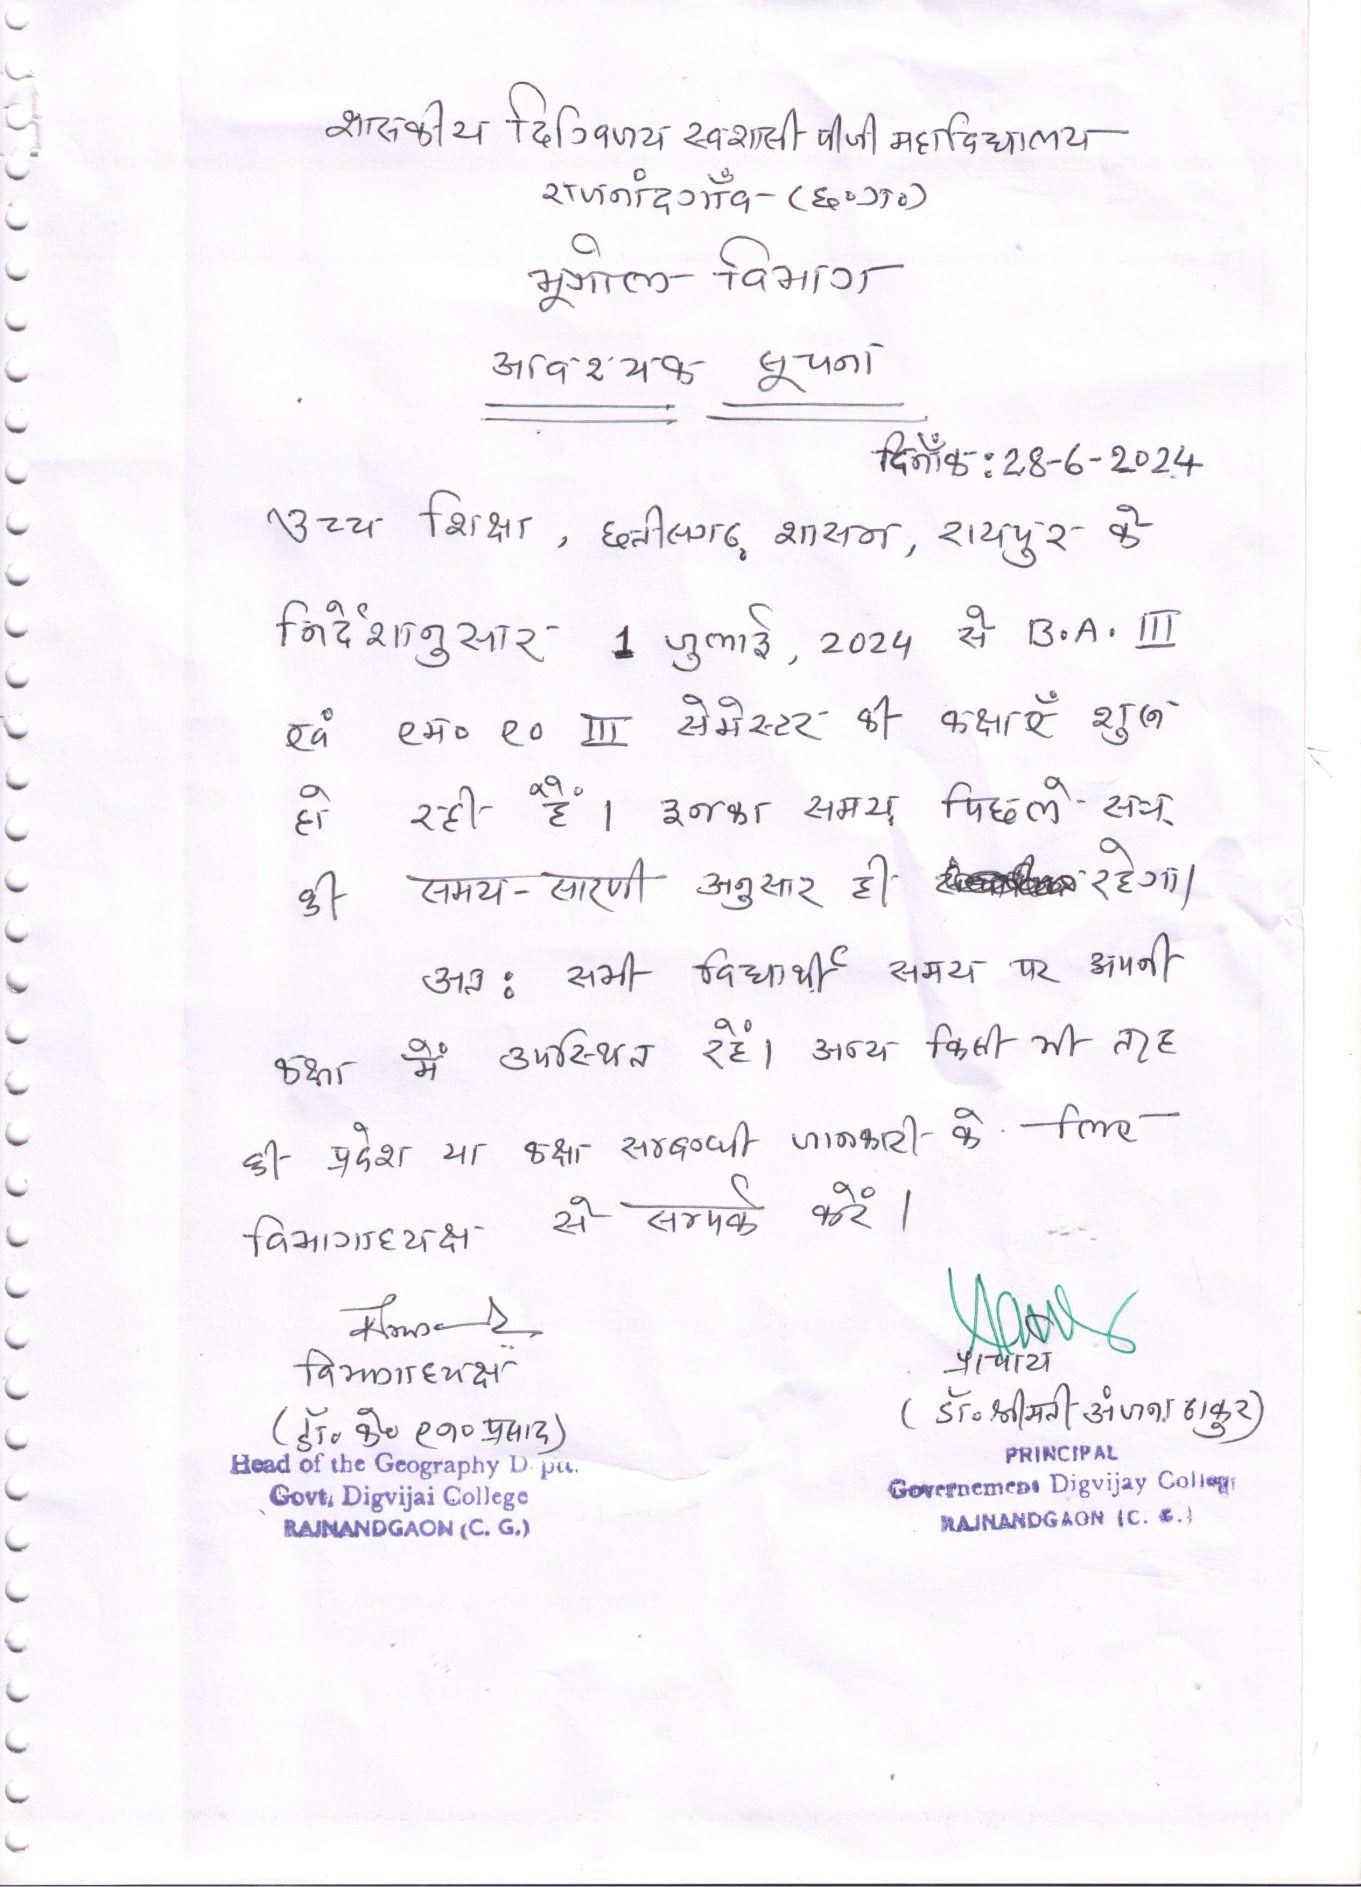 शासकीय दिग्विजय स्वशासी पीजी महाविद्यालय
राजनांदगाँव - (छ०ग०)
भूगोल विभाग
आवश्यक सूचना
दिनाँक : 28-6-2024
उच्च शिक्षा, छत्तीसगढ़ शासन, रायपुर के
निर्देशानुसार 1 जुलाई, 2024 से B.A. III
एवं एम० ए० III सेमेस्टर की कक्षाएँ शुरू
हो रही हैं। इनका समय, पिछले सत्र
की समय-सारणी अनुसार ही रहेगा।
अतः सभी विद्यार्थी समय पर अपनी
कक्षा में उपस्थित रहें। अन्य किसी भी तरह
की प्रवेश या कक्षा सम्बन्धी जानकारी के लिए
विभागाध्यक्ष से सम्पर्क करें।
विभागाध्यक्ष
प्राचार्य
(डॉ० के० एन० प्रसाद)
(डॉ० श्रीमती अंजना ठाकुर)
Head of the Geography D pt.
Govt. Digvijai College
RAJNANDGAON (C. G.)
PRINCIPAL
Governement Digvijay College
RAJNANDGAON (C. G.)